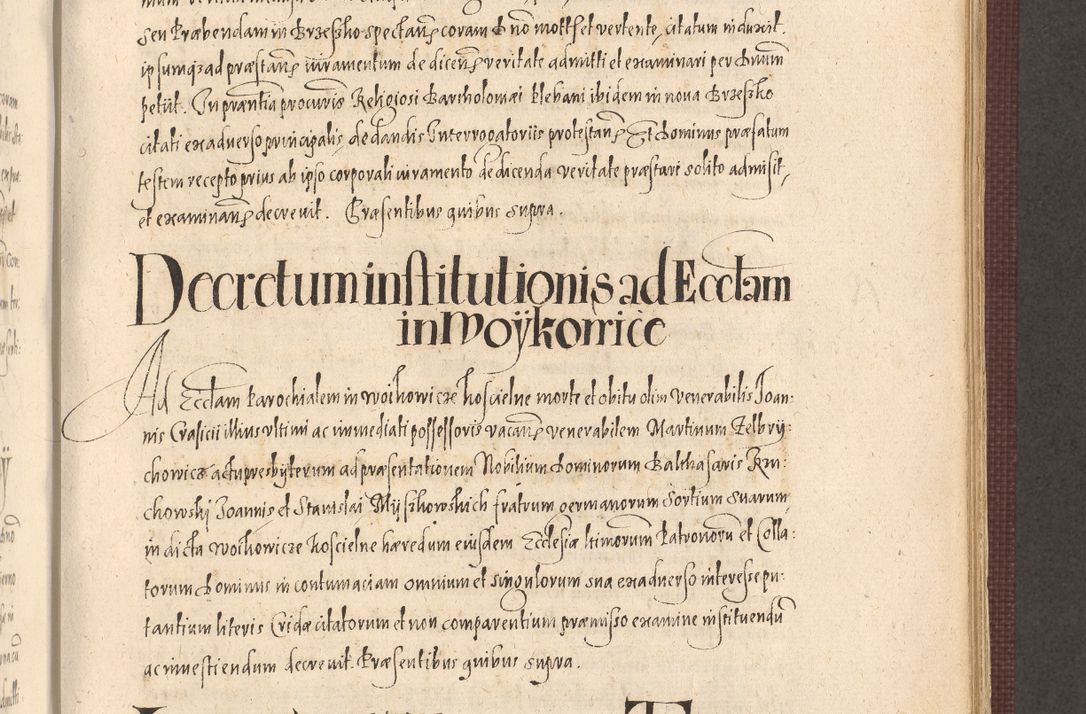 seu Præbendam in Brzeszko spectans coram d no mottset vertente, citatum induxit.
ipsumq3 ad præstans iuramentum de dicens veritate admitti et examinari per dnum
petiit. In præntia procuris Religiosi Bartholomæi Plebani ibidem in nova Brzeszko
citati ex adverso principalis, de dandis Interrogatoriis protestans Et dominus præfatum
testem recepto prius ab ipso corporali iuramento de dicenda veritate præstari solito admisit,
et examinans decrevit. Præsentibus quibus supra.
Decretum institutionis ad Ecclam
in Woÿkowice
Ad Ecclam Parochialem in Woikowicze Koscielne morte et obitu olim venerabilis Joan:
nis Crasicii illius ultimi ac immediati possessoris vacans venerabilem Martinum Zelbry:
chowicz actu presbÿterum ad præsentationem Nobilium dominorum Balthasaris Kru:
chowskj Joannis et Stanislai Mÿszkowskich fratrum germanorum Sortium suarum
in dicta Woikowicze Koscielne hæredum eiusdem Ecclesiæ ltimorum Patronorū et Colla:
torum dominus in contumaciam omnium et singulorum sua ex adverso interesse pu:
tantium literis Cridæ citatorum et non comparentium præmisso examine instituendū
ac investiendum decrevit. Præsentibus quibus supra.